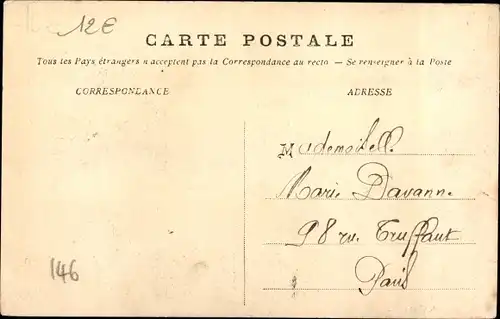 12€
CARTE POSTALE
Tous les Pays étrangers n'acceptent pas la Correspondance au recto — Se renseigner à la Poste
CORRESPONDANCE
ADRESSE
Mademoisell
Marie Davanne
98 ru Truffaut
Paris
146